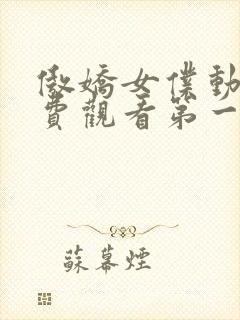 傲嬌女僕動
費觀看第一
蘇幕煙